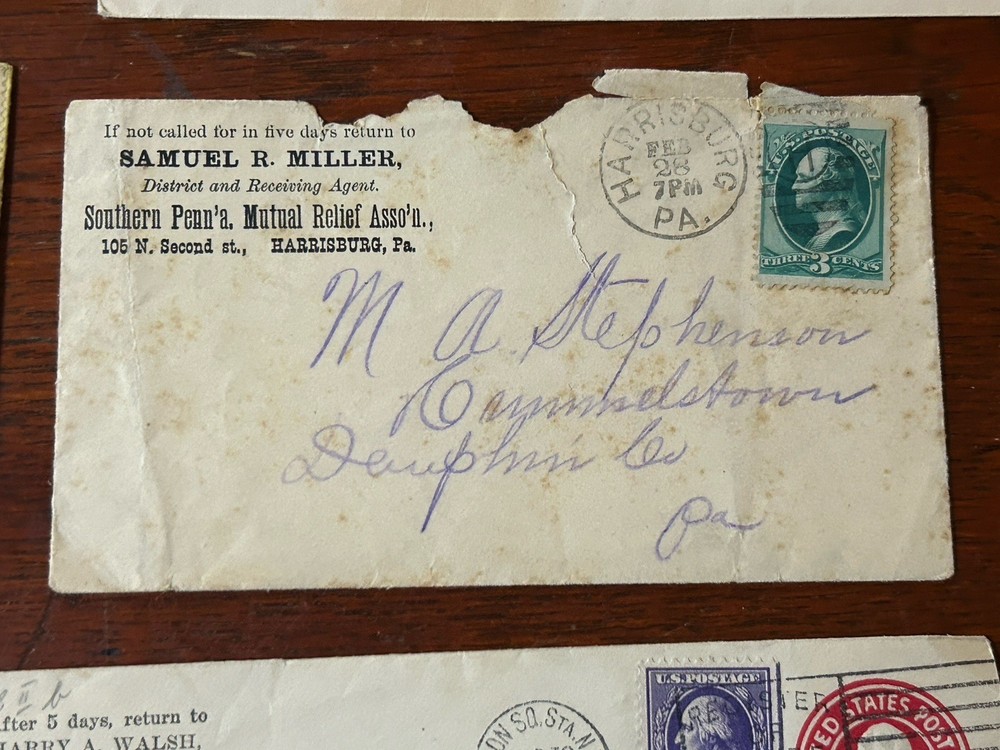 If not called for in five days return to
SAMUEL R. MILLER,
District and Receiving Agent.
Southern Penn'a. Mutual Relief Asso'n.,
105 N. Second st., HARRISBURG, Pa.
HARRISBURG
FEB
28
7PM
PA.
U.S. POSTAGE
THREE 3 CENTS
M A Stephenson
Hummelstown
Dauphin Co
Pa
II b
After 5 days, return to
HARRY A. WALSH,
ON SQ. STA. N
U.S. POSTAGE
UNITED STATES POST